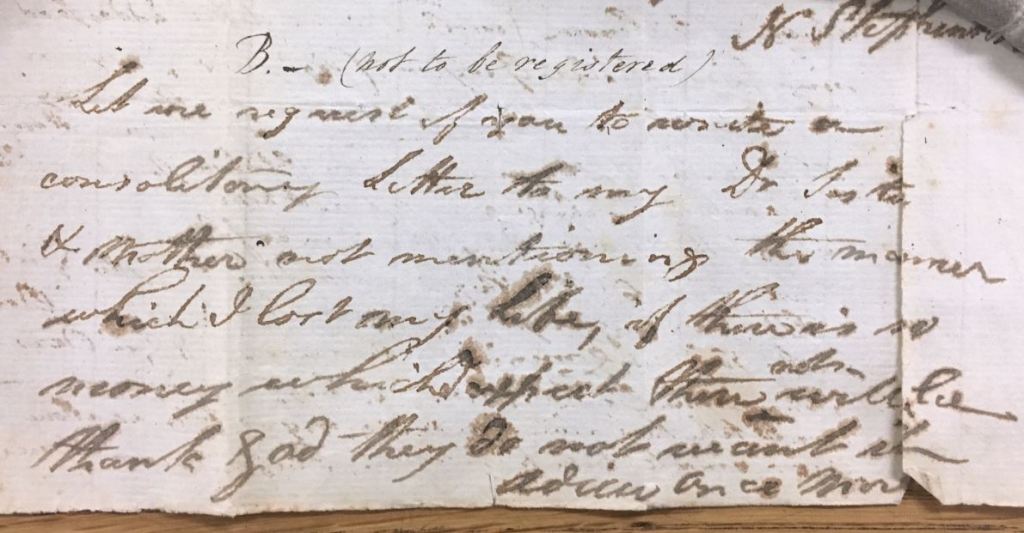 N. Stephenson
B. - (not to be registered)
Let me request of you to write a
consolitary Letter to my Dr Sister
& Mother not mentioning the manner
which I lost my Life, if there is no
money which I expect there
not
will be
thank God they do not want it
adieu once more